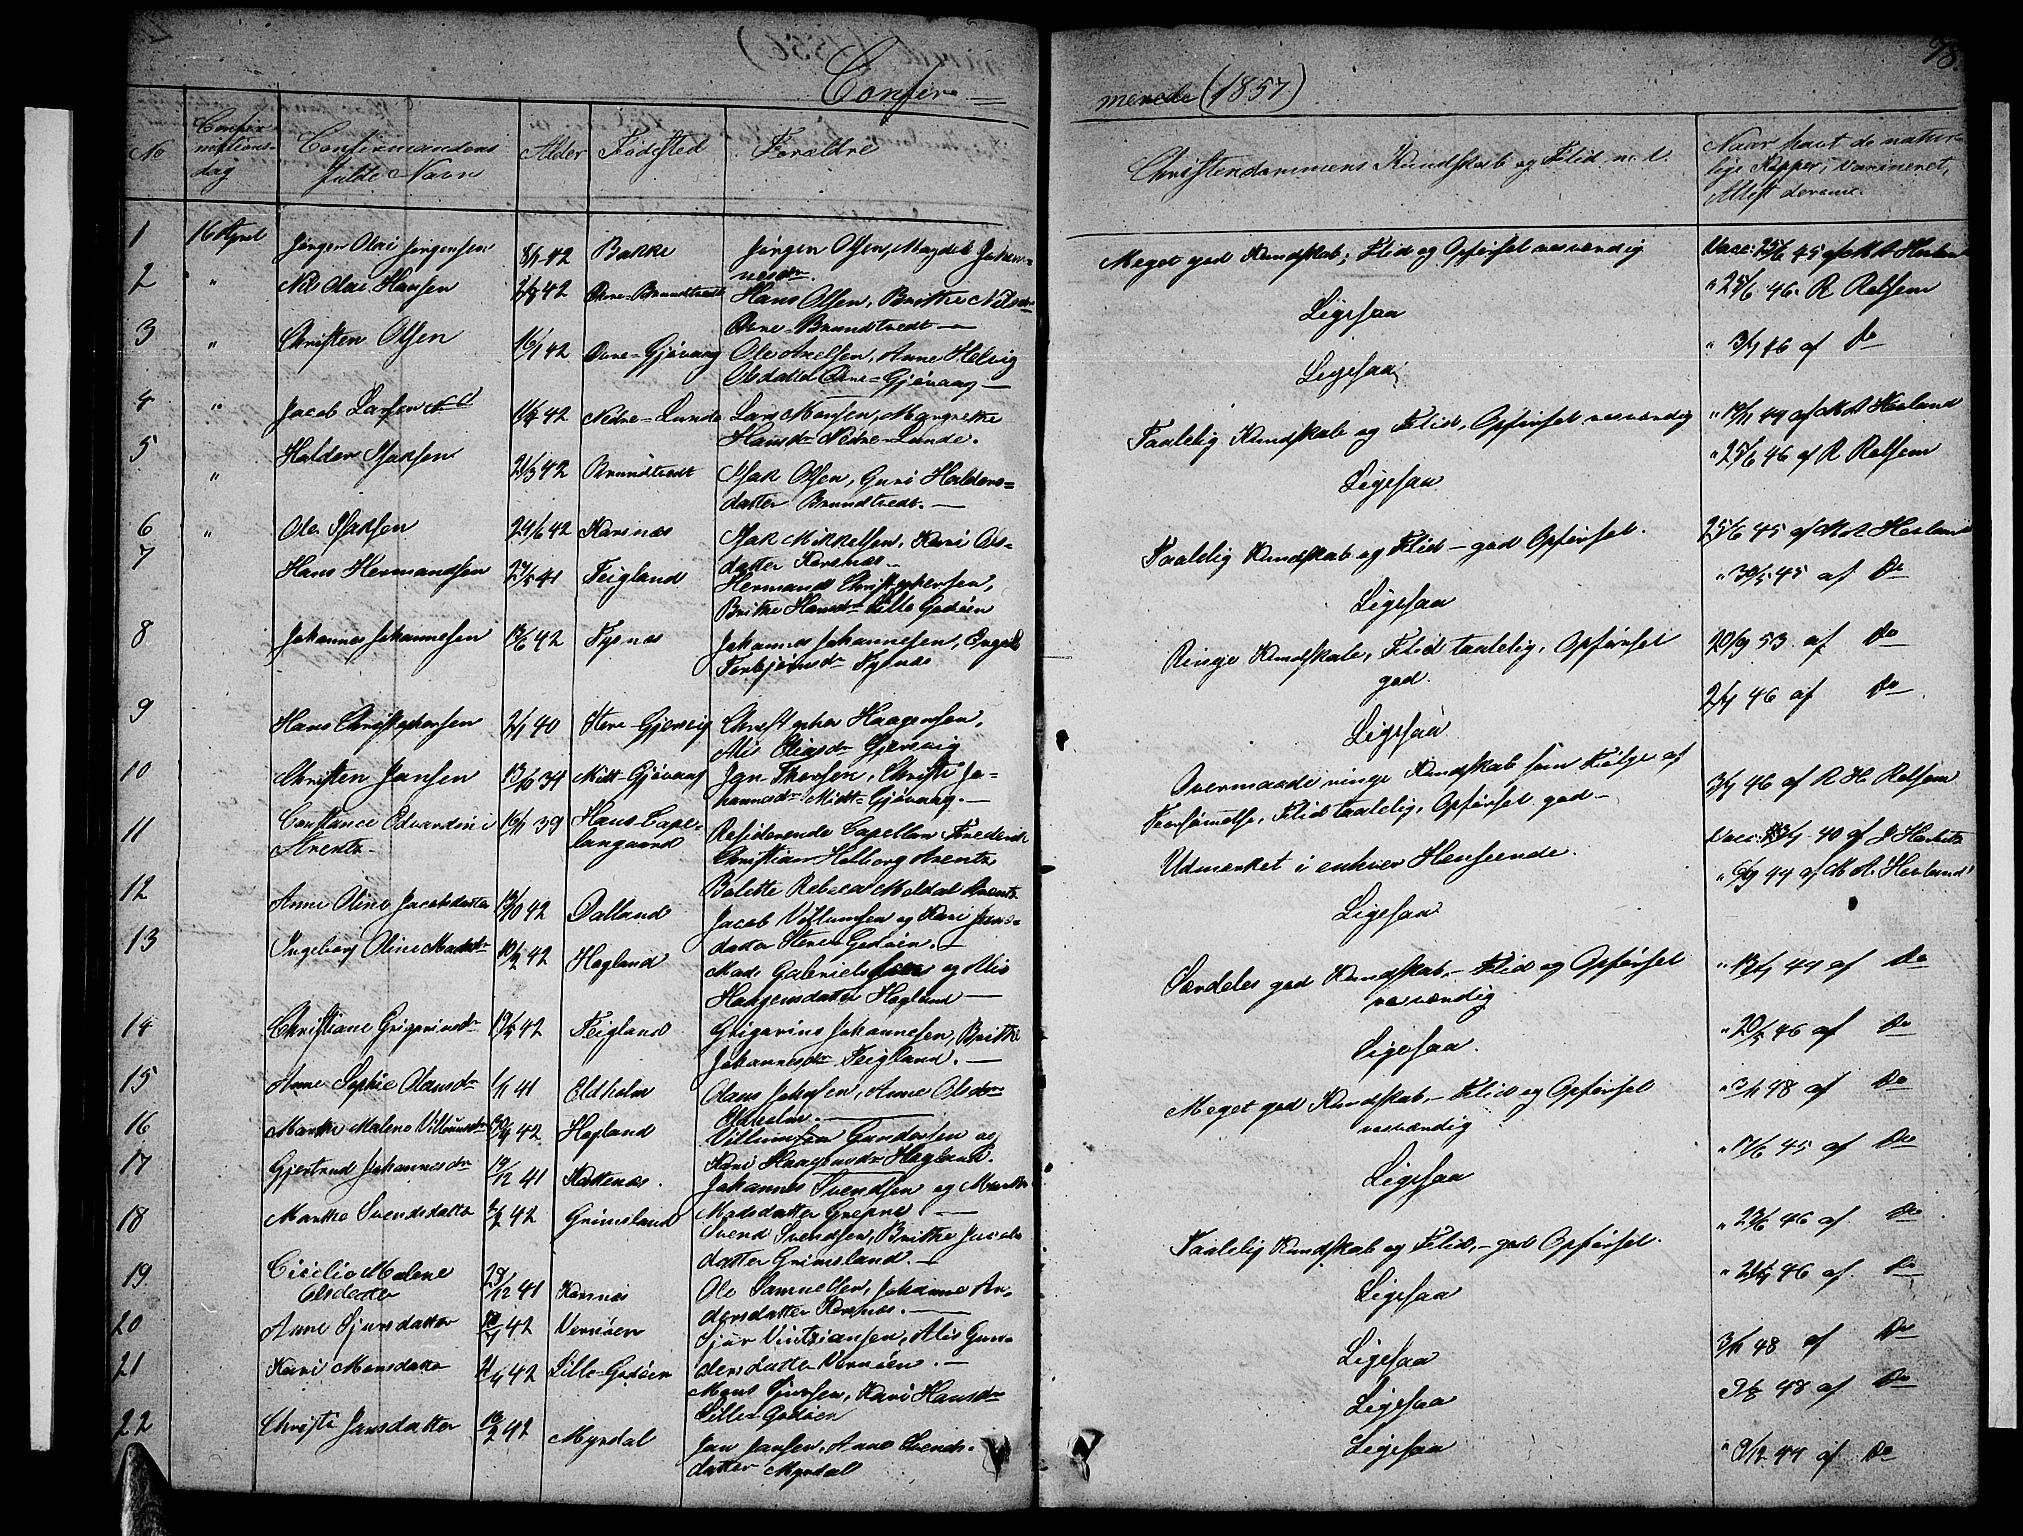 Confir=
merede (1857)
78.
No
Confir-
mations-
dag
Confirmandens
fulde Navn
Alder
Fødested
Forældre
Christendommens Kundskab og Flid m. v.
Naar havt de natur-
lige Kopper, vaccineret,
Attest derom.
1 16 April Jørgen Olai Jørgensen 8/1 42 Bakke Jørgen Olsen, Magdele Johan-
nesdr
Meget god Kundskab, Flid og Opførsel roesværdig
Vacc: 25/6 45 af M A Hesland
2 " Nils Olai Hansen 42 Øvre-Brundtvedt Hans Olsen, Brithe Nilsdr
Øvre-Brundtvedt
Ligesaa
" 25/6 46. R Rolfsen
3 " Christen Olsen 16/1 42 Øvre-Gjøvaag Ole Axelsen, Anne Helvig
Olsdatter Øvre=Gjøvaag
Ligesaa
" 3/7 46 af Do
4 " Jacob Larsen 42 Nedre-Lunde Lars Monsen, Margrethe
Hansdr Nedre-Lunde.
Taalelig Kundskab og Flid, Opførsel roesværdig
" 44 af M A Hesland
5 " Haldor Isaksen 21/3 42 Brundtvedt Isak Olsen, Guri Haldors=
datter Brundtvedt.
Ligesaa
" 25/6 46 af R Rolfsen
6 " Ole Isaksen 24/6 42 Korsnæs Isak Mikkelsen, Kari Ols-
datter Korsnæs
Taalelig Kundskab og Flid - god Opførsel.
25/6 45 af M A Hesland
7 Hans Hermandsen 27/5 41 Teigland Hermand Christophersen,
Brithe Hansdr Lille Godøen
Ligesaa
" 30/5 45 af Do
8 Johannes Johannesen 13/6 42 Tysnæs Johannes Johannesen, Engel
Torbjørnsdr Tysnæs
Ringe Kundskab, Flid taalelig, Opførsel
god.
20/9 53. af Do
9 Hans Christophersen 2/1 40 Store-Gjersvig Christopher Haagensen,
Alis Eliasdr Gjersvig
Ligesaa
2/7 46 af Do
10 Christen Jansen 13/10 34 Midt-Gjøvaag Jan Thorsen, Christi Jo-
hannesdr Midt-Gjøvaag.
Overmaade ringe Kundskab som Følge af
Forsømmelse, Flid taalelig, Opførsel god
3/7 46 af R H Rolfsen
11 Constance Edvardine
Arentz 16/1 39 Hans Cape-
langaard Residerende Capellan Frederik
Christian Holberg Arentz
Bolette Rebecca Moldal Arentz
Udmærket i enhver Henseende.
40 af J Herbitz
12 Anne Oline Jacobsdatter 13/10 42 Dalland Jacob Villumsen og Kari Jans-
datter Store Godøen.
Ligesaa
" 6/9 44 af M A Hesland
13 Ingeborg Oline Madsdr 10/2 42 Hogland Mads Gabrielsen og Alis
Haagensdatter Hogland
Særdeles god Kundskab, - Flid og Opførsel
roesværdig
" 44 af Do
14 Christiane Grigoriusdr 19/5 42 Teigland Grigorius Johannesen, Brithe
Johannesdr Teigland.
Ligesaa.
" 20/5 46 af Do
15 Anne Sophie Olausdr 1/11 41 Eldholm Olaus Jakobsen, Anne Olsdr
Eldholm.
Meget god Kundskab, - Flid og Opførsel
roesværdig
" 3/11 48 af Do
16 Marthe Malene Villumsdr 42 Hogland Villumsen Gundersen og
Kari Haagensdr Hogland.
" 17/6 45 af Do
17 Gjertrud Johannesdr 19/12 41 Kattenæs. Johannes Svendsen og Marthe
Madsdatter Grepne
Ligesaa
18 Marthe Svendsdatter 2/2 42 Grimsland Svend Svendsen, Brithe Jacobs
datter Grimsland.
Taalelig Kundskab og Flid, - god Opførsel.
" 23/6 46 af Do
19. Cicilie Malene
Olsdatter 28/12 41 Korsnæs Ole Samuelsen, Johanne An-
dersdatter Korsnæs.
Ligesaa
46 af Do
20 Anne Sjursdatter 42 Vernøen Sjur Vintziansen, Alis Gun-
dersdatter Vernøen.
Ligesaa
3/11 48 af Do
21 Kari Monsdatter 42 Lille-Godøen Mons Sjursen, Kari Hansdr
Lille Godøen
Ligesaa
48 af Do
22 Christi Jansdatter 42 Myrdal Jan Jansen, Anne Svends-
datter Myrdal
Ligesaa
" 9/12 44 af Do